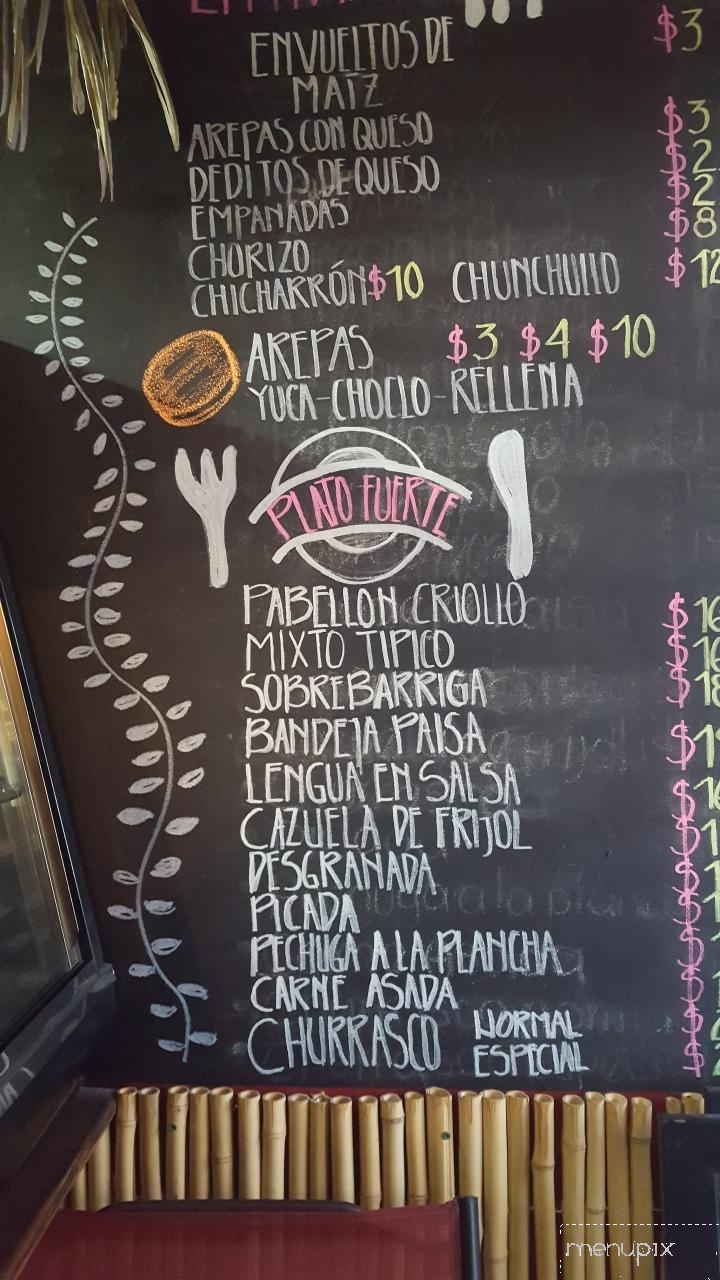 $3
ENVUELTOS DE
MAÍZ
$3
AREPAS CON QUESO
$2
DEDITOS DE QUESO
$2
EMPANADAS
$8
CHORIZO
$12
CHICHARRÓN $10 CHUNCHULLO
AREPAS $3 $4 $10
YUCA-CHOCLO-RELLENA
PLATO FUERTE
PABELLON CRIOLLO $16
MIXTO TIPICO $16
SOBREBARRIGA $18
BANDEJA PAISA $1
LENGUA EN SALSA $16
CAZUELA DE FRIJOL $1
DESGRANADA $1
PICADA $1
PECHUGA A LA PLANCHA $
CARNE ASADA $
CHURRASCO NORMAL $2
ESPECIAL $2
menupix